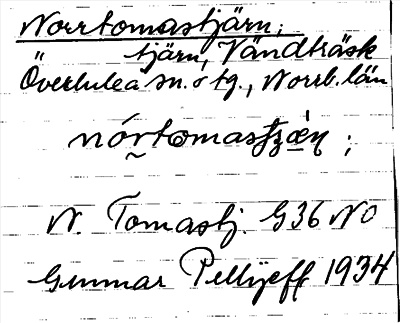 Norrtomastjärn;
tjärn, Vändträsk
Överlulea sn. o tg., Norrb. län
N. Tomastj. G36 NO
Gunnar Pellijeff 1934